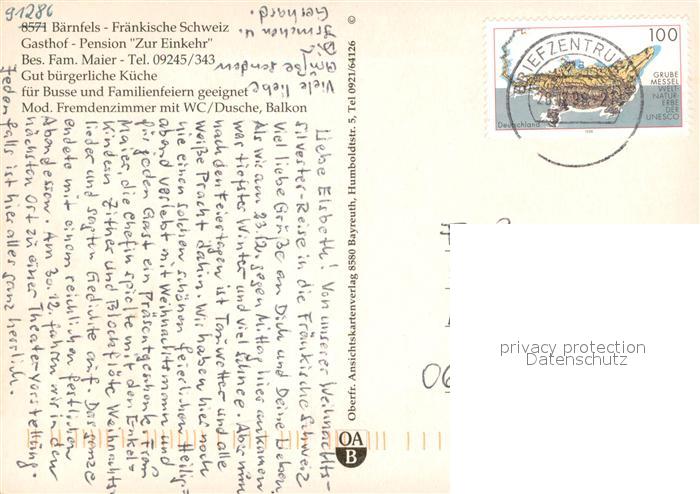 91286
8571 Bärnfels - Fränkische Schweiz
Gasthof - Pension "Zur Einkehr"
Bes. Fam. Maier - Tel. 09245/343
Gut bürgerliche Küche
für Busse und Familienfeiern geeignet
Mod. Fremdenzimmer mit WC/Dusche, Balkon
Liebe Elsbeth! Von unserer Weihnachts-
silvester-Reise in die Fränkische Schweiz
viel liebe Grüße an Dich und Deine Lieben.
Als wir am 23.12. gegen Mittag hier ankamen
war tiefster Winter und viel Schnee. Aber nun
nach den Feiertagen ist Tauwetter und alle
weiße Pracht dahin. Wir haben hier noch
nie einen solchen schönen feierlichen Heilig-
abend verlebt mit Weihnachtsmann und
für jeden Gast ein Präsentgeschenk. Frau
Maier, die Chefin spielte mit den Enkel-
kindern Zither und Blockflöte Weihnachts-
lieder und sagten Gedichte auf. Das ganze
endete mit einem reichlichen festlichen
Abendessen. Am 30.12. fahren wir in den
nächsten Ort zu einer Theater-Vorstellung.
Jedenfalls ist hier alles ganz herrlich.
Viele liebe
Grüße senden
Dir
Irmchen u.
Gerhard.
© Oberfr. Ansichtskartenverlag 8580 Bayreuth, Humboldtstr. 5, Tel 0921/64126
OA
B
BRIEFZENTRUM
100
GRUBE
MESSEL
WELT-
NATUR-
ERBE
DER
UNESCO
Deutschland
1998
06
privacy protection
Datenschutz